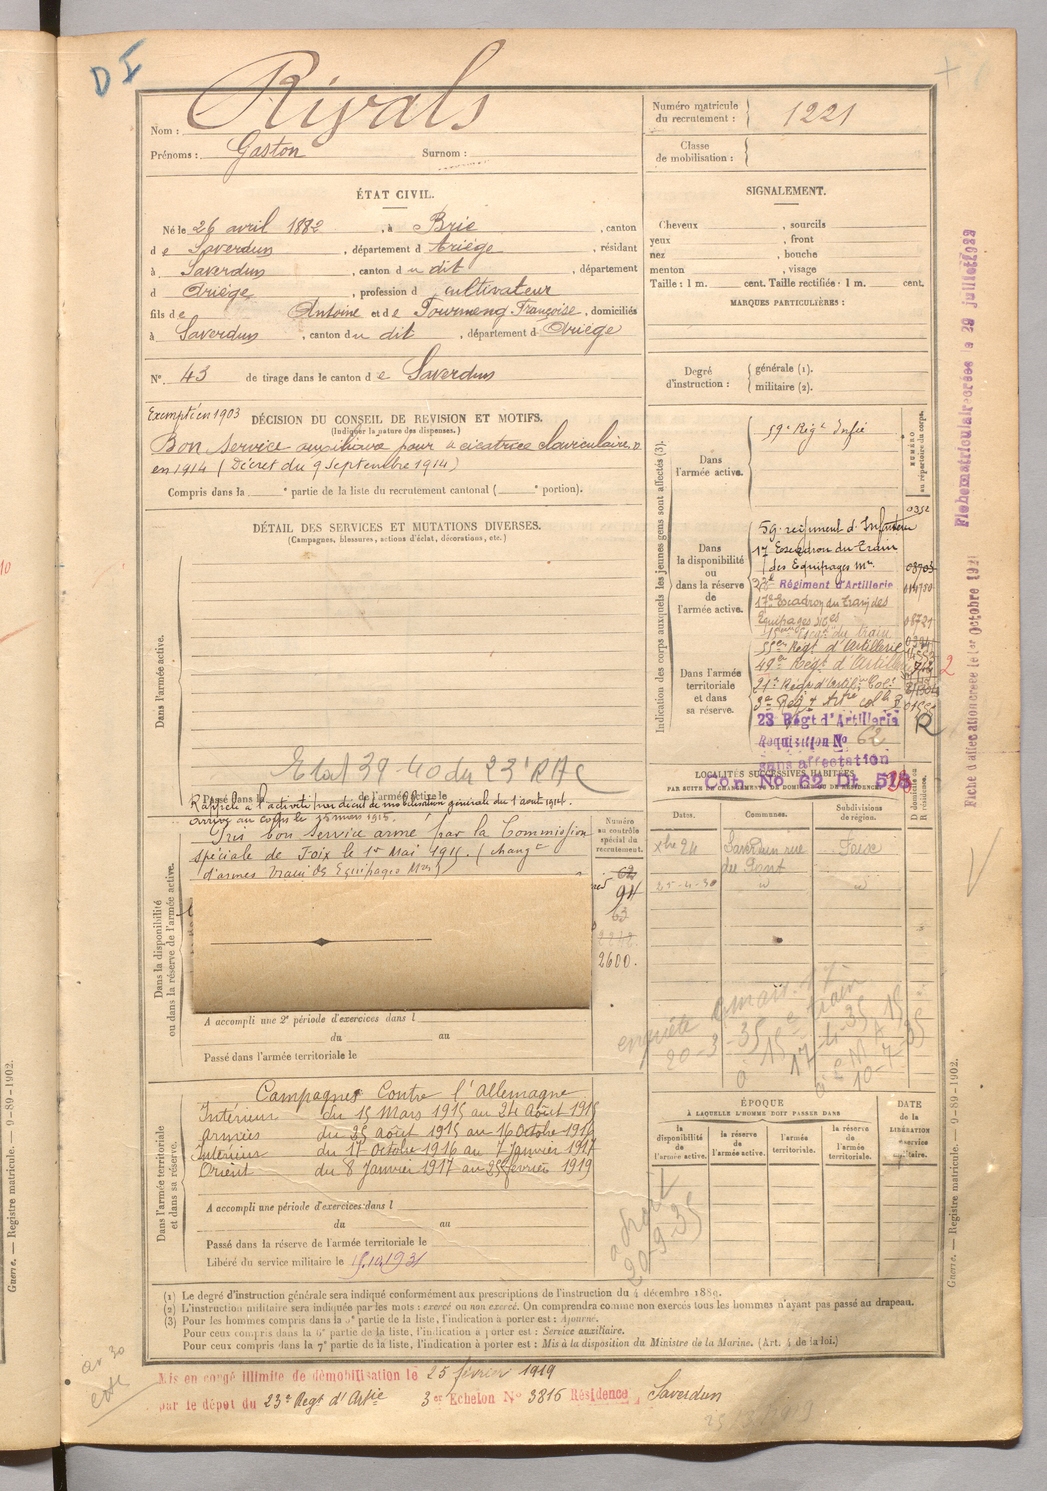 D I
Nom : Rivals
Prénoms : Gaston Surnom :
Numéro matricule du recrutement : 1221
Classe de mobilisation :
ÉTAT CIVIL.
Né le 26 avril 1882, à Brie, canton
de Saverdun, département d Ariège, résidant
à Saverdun, canton du dit, département
d Ariège, profession d cultivateur
fils de Antoine et de Tourmenq Françoise, domiciliés
à Saverdun, canton du dit, département d Ariège
N° 43 de tirage dans le canton de Saverdun
SIGNALEMENT.
Cheveux , sourcils
yeux , front
nez , bouche
menton , visage
Taille : 1 m. cent. Taille rectifiée : 1 m. cent.
MARQUES PARTICULIÈRES :
Degré d'instruction : générale (1).
militaire (2).
Exempté en 1903
DÉCISION DU CONSEIL DE REVISION ET MOTIFS.
(Indiquer la nature des dispenses.)
Bon Service auxiliaire pour cicatrice claviculaire D
en 1914 (Décret du 9 Septembre 1914)
Compris dans la e partie de la liste du recrutement cantonal ( e portion).
DÉTAIL DES SERVICES ET MUTATIONS DIVERSES.
(Campagnes, blessures, actions d'éclat, décorations, etc.)
Dans l'armée active.
Etat 39-40 du 23e RAC
Passé dans la de l'armée active le
Rappelé à l'activité par décret de mobilisation générale du 1er août 1914.
arrivé au corps le 15 mars 1915.
Pris bon service armé par la Commission
spéciale de Foix le 1er Mai 1915. (changt
d'armes Train des Equipages Mres)
Dans la disponibilité ou dans la réserve de l'armée active.
Numéro au contrôle spécial du recrutement.
62
94
63
2600.
A accompli une 2e période d'exercices dans l
du au
Passé dans l'armée territoriale le
Campagnes Contre l'Allemagne
Intérieur du 15 Mars 1915 au 24 Août 1915
Armées du 25 août 1915 au 16 Octobre 1916
Intérieur du 17 Octobre 1916 au 7 Janvier 1917
Orient du 8 Janvier 1917 au 25 février 1919
Dans l'armée territoriale et dans sa réserve.
A accompli une période d'exercices dans l
du au
Passé dans la réserve de l'armée territoriale le
Libéré du service militaire le 15.10.1931
Indication des corps auxquels les jeunes gens sont affectés (3).
NUMÉRO au répertoire du corps.
Dans l'armée active.
59e Régt Infie
Dans la disponibilité ou dans la réserve de l'armée active.
59e régiment d'Infanterie
17 Escadron du Train
des Equipages Mres
23e Régiment d'Artillerie
17e Escadron du Train des
Equipages Mres
Dans l'armée territoriale et dans sa réserve.
55e Régt d'Artillerie
49e Régt d'Artillerie
21e Régt d'Artie Colle
3e Régt Artie colle
23 Régt d'Artillerie
Réquisition N° 62
sans affectation
Con No 62 Dt 513
R
LOCALITÉS SUCCESSIVES HABITÉES
PAR SUITE DE CHANGEMENTS DE DOMICILE OU DE RÉSIDENCE.
Dates. Communes. Subdivisions de région. D domicile ou R résidence.
Xbre 24 Saverdun rue du Pont Foix
25-4-30 id id
enquête
20-3-35
17-4-35
10-7-35
ÉPOQUE
À LAQUELLE L'HOMME DOIT PASSER DANS
la disponibilité de l'armée active. la réserve de l'armée active. l'armée territoriale. la réserve de l'armée territoriale.
DATE de la LIBÉRATION du service militaire.
20-9-35
(1) Le degré d'instruction générale sera indiqué conformément aux prescriptions de l'instruction du 4 décembre 1889.
(2) L'instruction militaire sera indiquée par les mots : exercé ou non exercé. On comprendra comme non exercés tous les hommes n'ayant pas passé au drapeau.
(3) Pour les hommes compris dans la 5e partie de la liste, l'indication à porter est : Ajourné.
Pour ceux compris dans la 6e partie de la liste, l'indication à porter est : Service auxiliaire.
Pour ceux compris dans la 7e partie de la liste, l'indication à porter est : Mis à la disposition du Ministre de la Marine. (Art. 4 de la loi.)
Mis en congé illimité de démobilisation le 25 février 1919
par le dépôt du 23e Regt d'Artie 3e Echelon N° 3816 Résidence Saverdun
Fiche matriculaire créée le 29 juillet 1939
Fiche d'affectation créée le 1er Octobre 1921
Guerre. — Registre matricule. — 9-89-1902.
Guerre. — Registre matricule. — 9-89-1902.